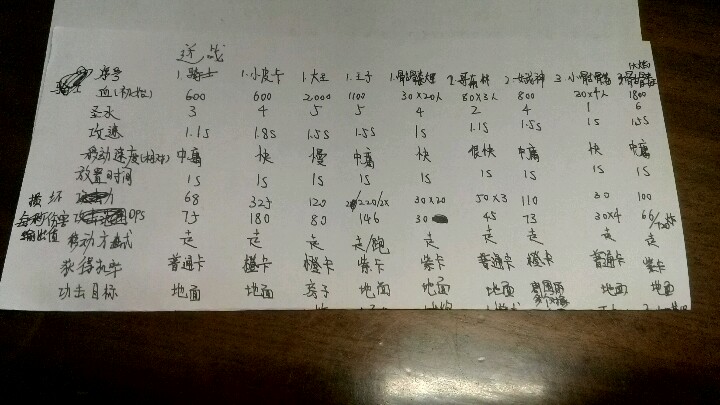 近战
序号 1.骑士 1.小皮卡 1.大王 1.王子 1. 2. 2.女武神 3.小骷髅 3.
血(初始) 600 600 2000 1100 30×20人 80×3人 800 30×4人 1800
圣水 3 4 5 5 4 2 4 1 6
攻速 1.1S 1.8S 1.5S 1.5S 1S 1.1S 1.5S 1S 1.5S
移动速度(相对) 中庸 快 慢 中庸 快 很快 中庸 快 中庸
放置时间 1S 1S 1S 1S 1S 1S 1S 1S 1S
损坏 68 325 120 220/2X 30×20 50×3 110 30 100
每秒伤害 DPS 75 180 80 146 30 45 73 30×4 66/
输出值
移动方式 走 走 走 走/跑 走 走 走 走 走
获得概率 普通卡 橙卡 橙卡 紫卡 紫卡 普通卡 橙卡 普通卡 紫卡
功击目标 地面 地面 房子 地面 地面 地面 地面 地面